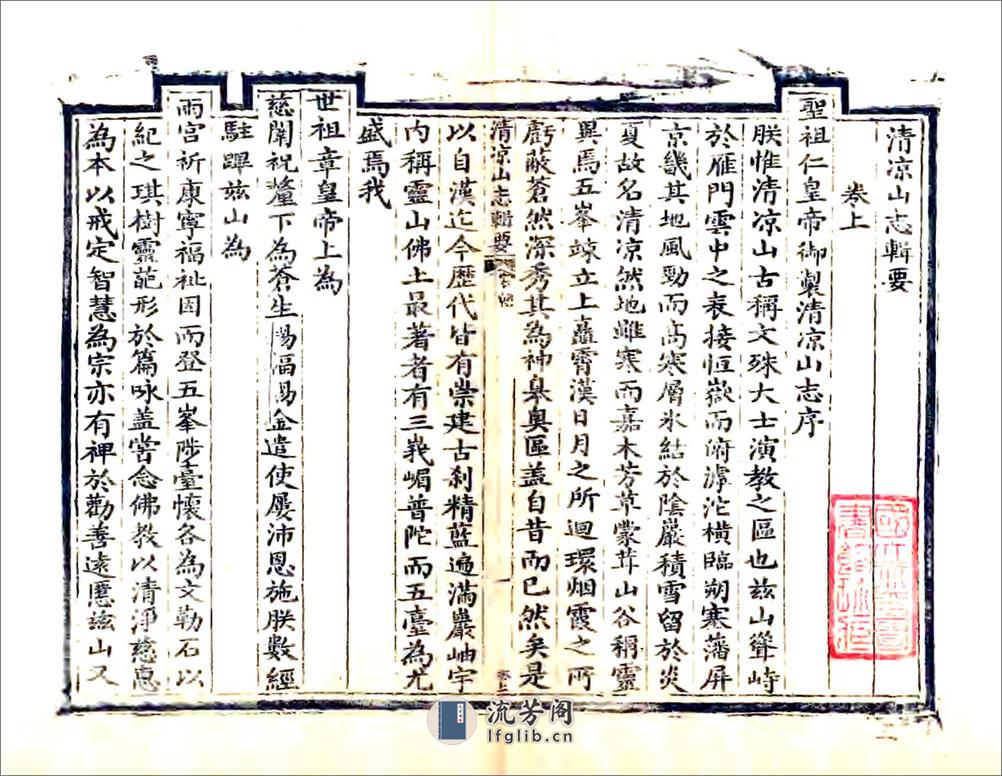 清凉山志輯要
卷上
聖祖仁皇帝御製清凉山志序
朕惟清凉山古稱文殊大士演教之區也兹山聳峙
於雁門雲中之表接恒嶽而俯滹沱橫臨朔塞藩屏
京畿其地風勁而高寒層氷結於陰巖積雪留於炎
夏故名清凉然地雖寒而嘉木芳草蒙茸山谷稱靈
異焉五峯竦立上矗霄漢日月之所迴環烟霞之所
虧蔽蒼然深秀其為神皋奥區盖自昔而已然矣是
清凉山志輯要
卷上
以自漢迄今歷代皆有崇建古刹精藍遍滿巖岫宇
内稱靈山佛土最著者有三峩嵋普陀而五臺為尤
盛焉我
世祖章皇帝上為
慈闈祝釐下為蒼生錫福賜金遣使屢沛恩施朕數經
駐蹕兹山為
兩宫祈康寧福祉因而登五峯陟臺懷各為文勒石以
紀之琪樹靈葩形於篇咏盖嘗念佛教以清淨慈惠
為本以戒定智慧為宗亦有裨於勸善遠慝兹山又
流芳阁
lfglib.cn